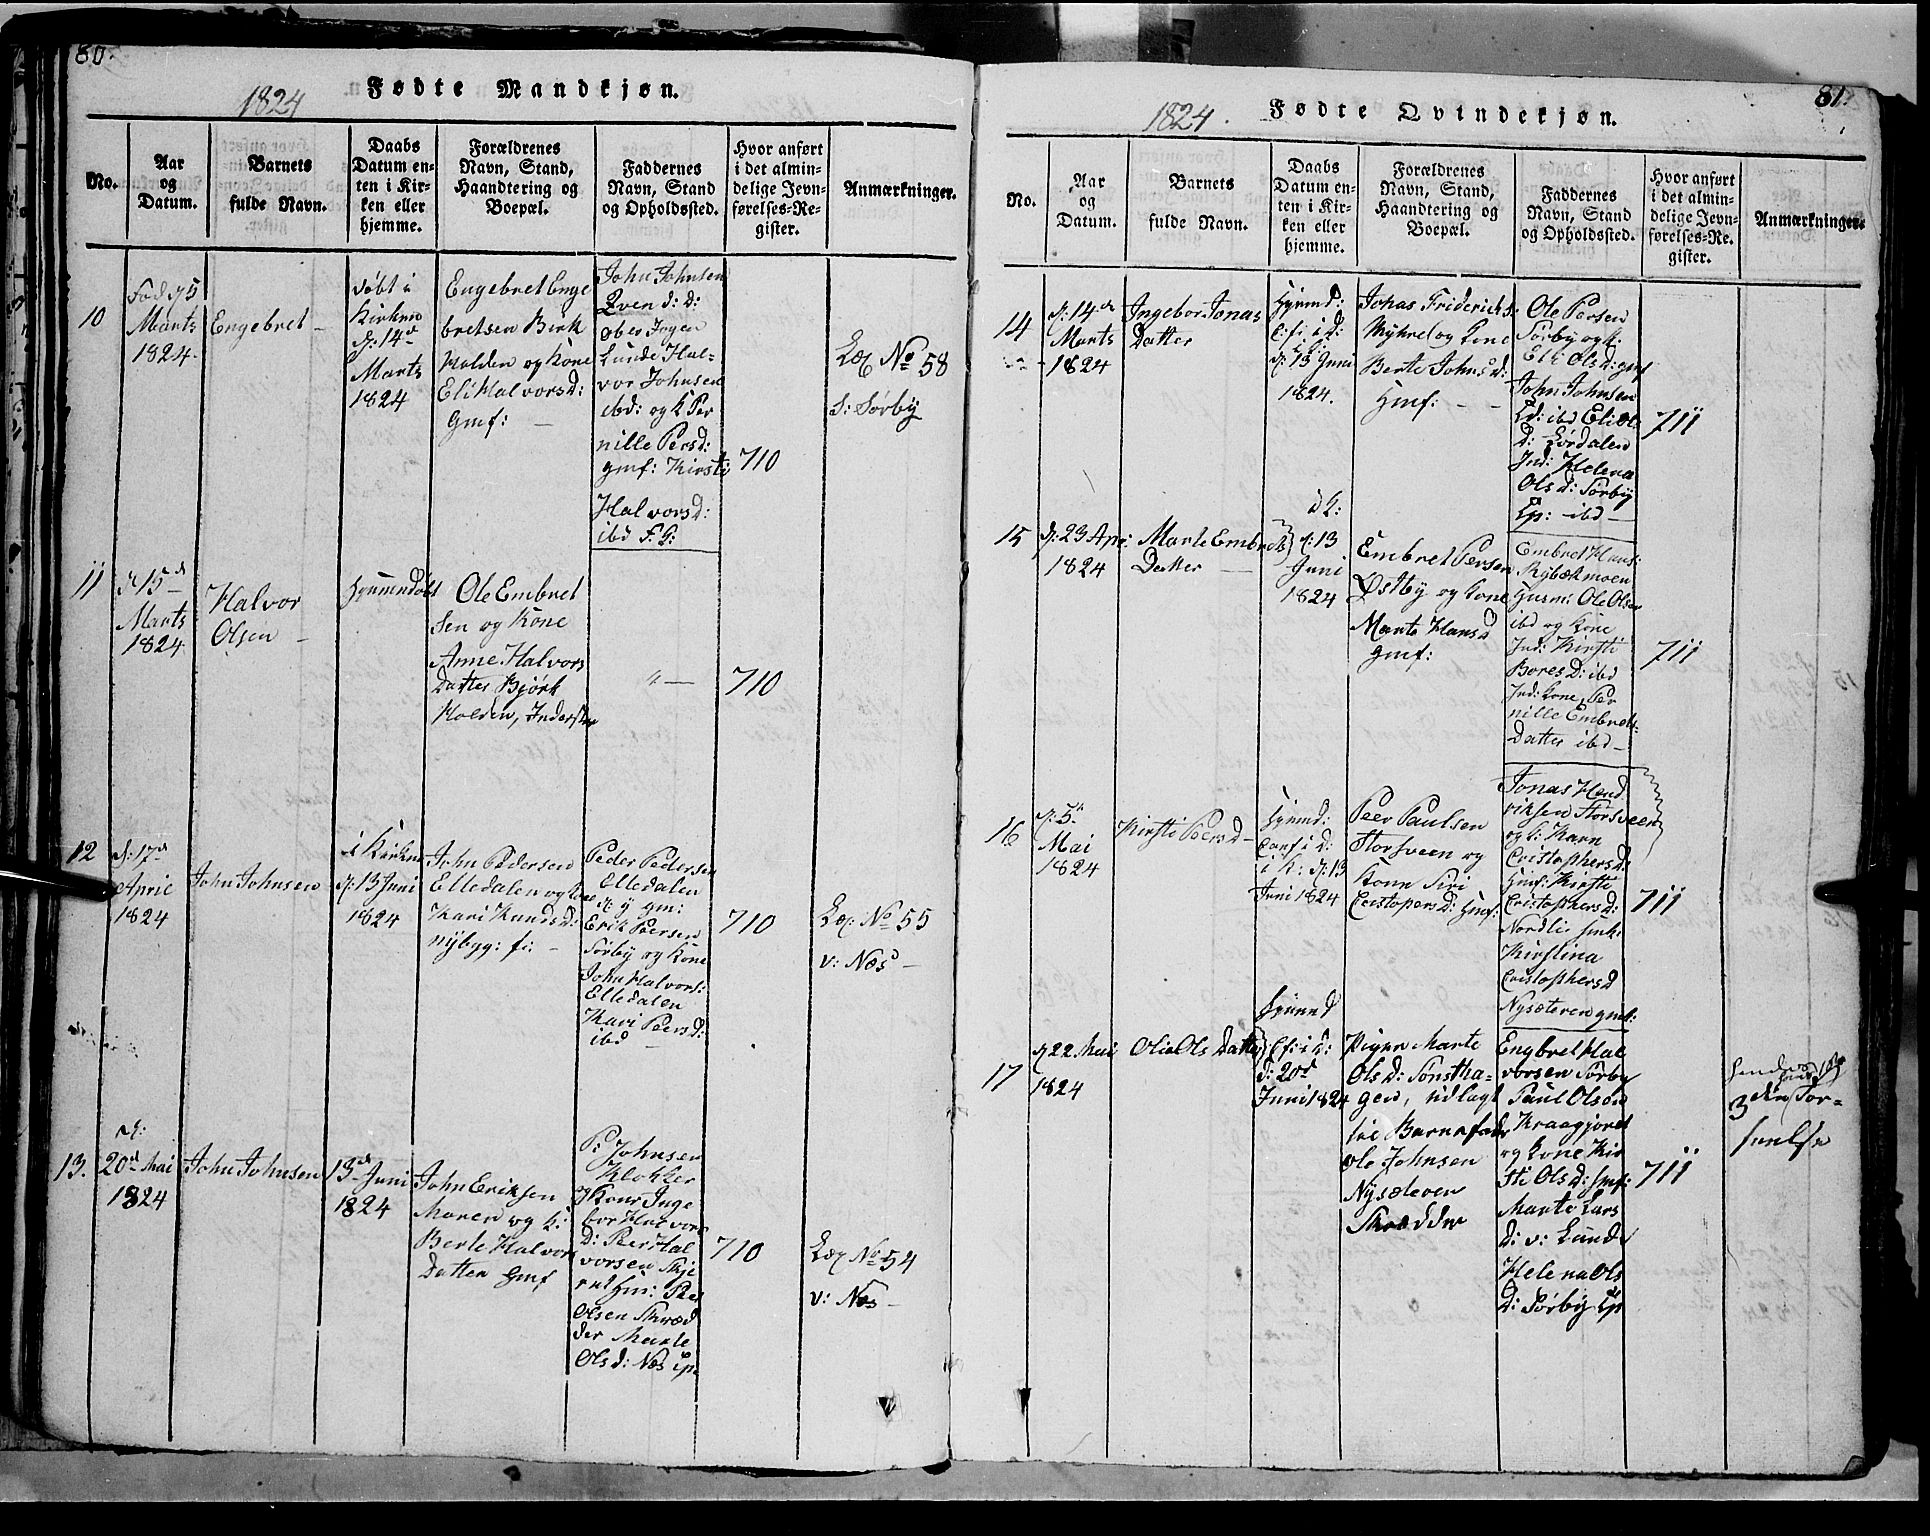 80.
Fødte Mandkjøn.
1824
No.
Aar
og
Datum.
Barnets
fulde Navn.
Daabs
Datum en-
ten i Kir-
ken eller
hjemme.
Forældrenes
Navn, Stand,
Haandtering og
Boepæl.
Faddernes
Navn, Stand
og Opholdssted.
Hvor anført
i det almin-
delige Jevn-
førelses-Re-
gister.
Anmærkninger.
10
Marts
1824.
Engebret
døbt i
Kirken
d: 14de
Marts
1824
Engebret Enge
bretsen Birk
holden og Kone
Eli Halvorsd:
Gmf:
John Johnsen
Qven d: d:
Lunde Hal-
vor Johnsen
ibd: og K Per
nille Persd:
gmf: Kirsti
Halvorsd:
ibd F. G:
710
No 58
S: Sørby
11
d 15de
Marts
1824
Halvor
Olsen
Hjemmedøbt
Ole Embret
sen og Kone
Anne Halvors
Datter Bjørk
Holden, Inderster
710
12
d: 17de
April
1824
John Johnsen
i Kirken
d: 13 Juni
1824
John Pedersen
Elledalen og Kone
Kari Knudsd:
nybyg: f:
Peder Pedersen
Elledalen
Erik Peersen
Sørby og Kone
John Halvors:
Elledalen
Kari Peersd:
ibd
710
No 55
v: Næs
13.
d:
20de Mai
1824
John Johnsen
13de Juni
1824
John Eriksen
Moren og K:
Berte Halvors
Datter Gmf
P: Johnsen
Klokker
Kone Inge
bor Halvors
D: Peer Hal
vorsen Skje
Gm: Peer
Olsen Skræd
der Marte
Olsd: Næs
710
No 54
v: Næs
81.
Fødte Qvindekjøn.
1824.
No.
Aar
og
Datum.
Barnets
fulde Navn.
Daabs
Datum en-
ten i Kir-
ken eller
hjemme.
Forældrenes
Navn, Stand,
Haandtering og
Boepæl.
Faddernes
Navn, Stand
og Opholdssted.
Hvor anført
i det almin-
delige Jevn-
førelses-Re-
gister.
Anmærkninger.
14
d: 14de
Marts
1824
Ingebor Jonas
Datter
Hjemd:
Cf: i d:
d: 13 Juni
1824.
Jonas Friderichs:
Myhre og Kone
Berte Johnsd:
Hmf:
Ole Persen
Sørby og K:
Eli Olsd: gmf
John Johnsen
ibd Eli Ol
D: Lørdalen
Ind: Helena
Olsd: Sørby
Lp: ibd
711
15
d: 23 Apr:
1824
Marte Embrets
Datter
d: 13
Juni
1824
Embret Persen
Østby og Kone
Marte Hansd
Gmf:
Embret Hans:
Mybækmoen
Husm: Ole Olsen
ibd og Kone
Ind: Kirsti
Boresd: ibd
Ind: Kone, Per
nille Embrets
Datter ibd
711
16
d: 5te
Mai
1824
Kirsti Peersd
Hjemd:
Conf i d:
i K: d: 13
Juni 1824
Peer Paulsen
Storsveen og
Kone Siri
Cristopersd: Hmf:
Jonas Hend
riksen Storsveen
og K: Karn
Cristophersd:
Hmf: Kirsti
Cristophersd:
Nordli
Kirstina
Cristophersd
Nysæteren gmf:
711
17
d 22 Mai
1824
Olia Ols Datter
Hjemd
Cf: i d:
d: 20de
Juni 1824
Pigen Marte
Olsd: Sønstha-
gen, udlagt
til Barnefader
Ole Johnsen
Nysæteren
Skrædder
Engbret Hal
vorsen Sørby
Paul Olsen
Kraagjordet
og Kone Kir
sti Olsd: gmf:
Marte Lars
D: v: Lunde
Helena Ols
D: Sørby Lp
711
hendes 1ste
3die For-
seelse